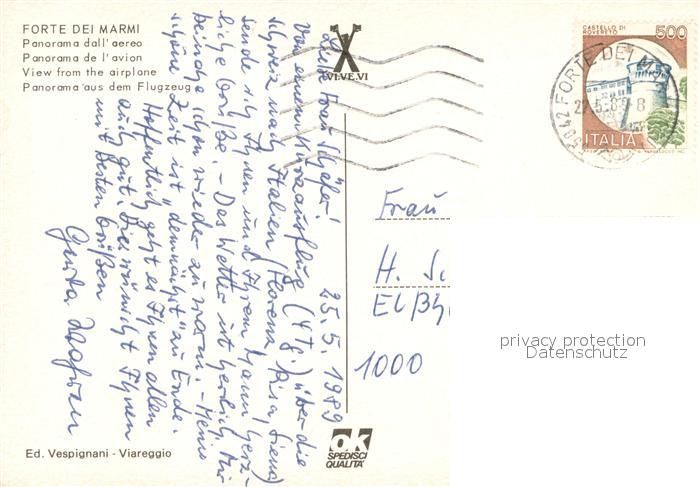 FORTE DEI MARMI
Panorama dall'aereo
Panorama de l'avion
View from the airplane
Panorama aus dem Flugzeug
VI.VE.VI
CASTELLO DI ROVERETO
500
ITALIA
FORTE DEI M
25.5.1989
Liebe Frau Schäfer!
Von einem Kurzausflug (4 Tg.) über die
Schweiz nach Italien (Florenz, Pisa, Siena)
sende ich Ihnen und Ihrem Mann herz-
liche Grüße. - Das Wetter ist herrlich, mir
beinahe schon wieder zu warm. - Meine
schöne Zeit ist "demnächst" zu Ende.
Hoffentlich geht es Ihnen allen
auch gut. Dies wünscht Ihnen
mit besten Grüßen
Frau
H. S
1000
privacy protection
Datenschutz
ok
SPEDISCI
QUALITA'
Ed. Vespignani - Viareggio